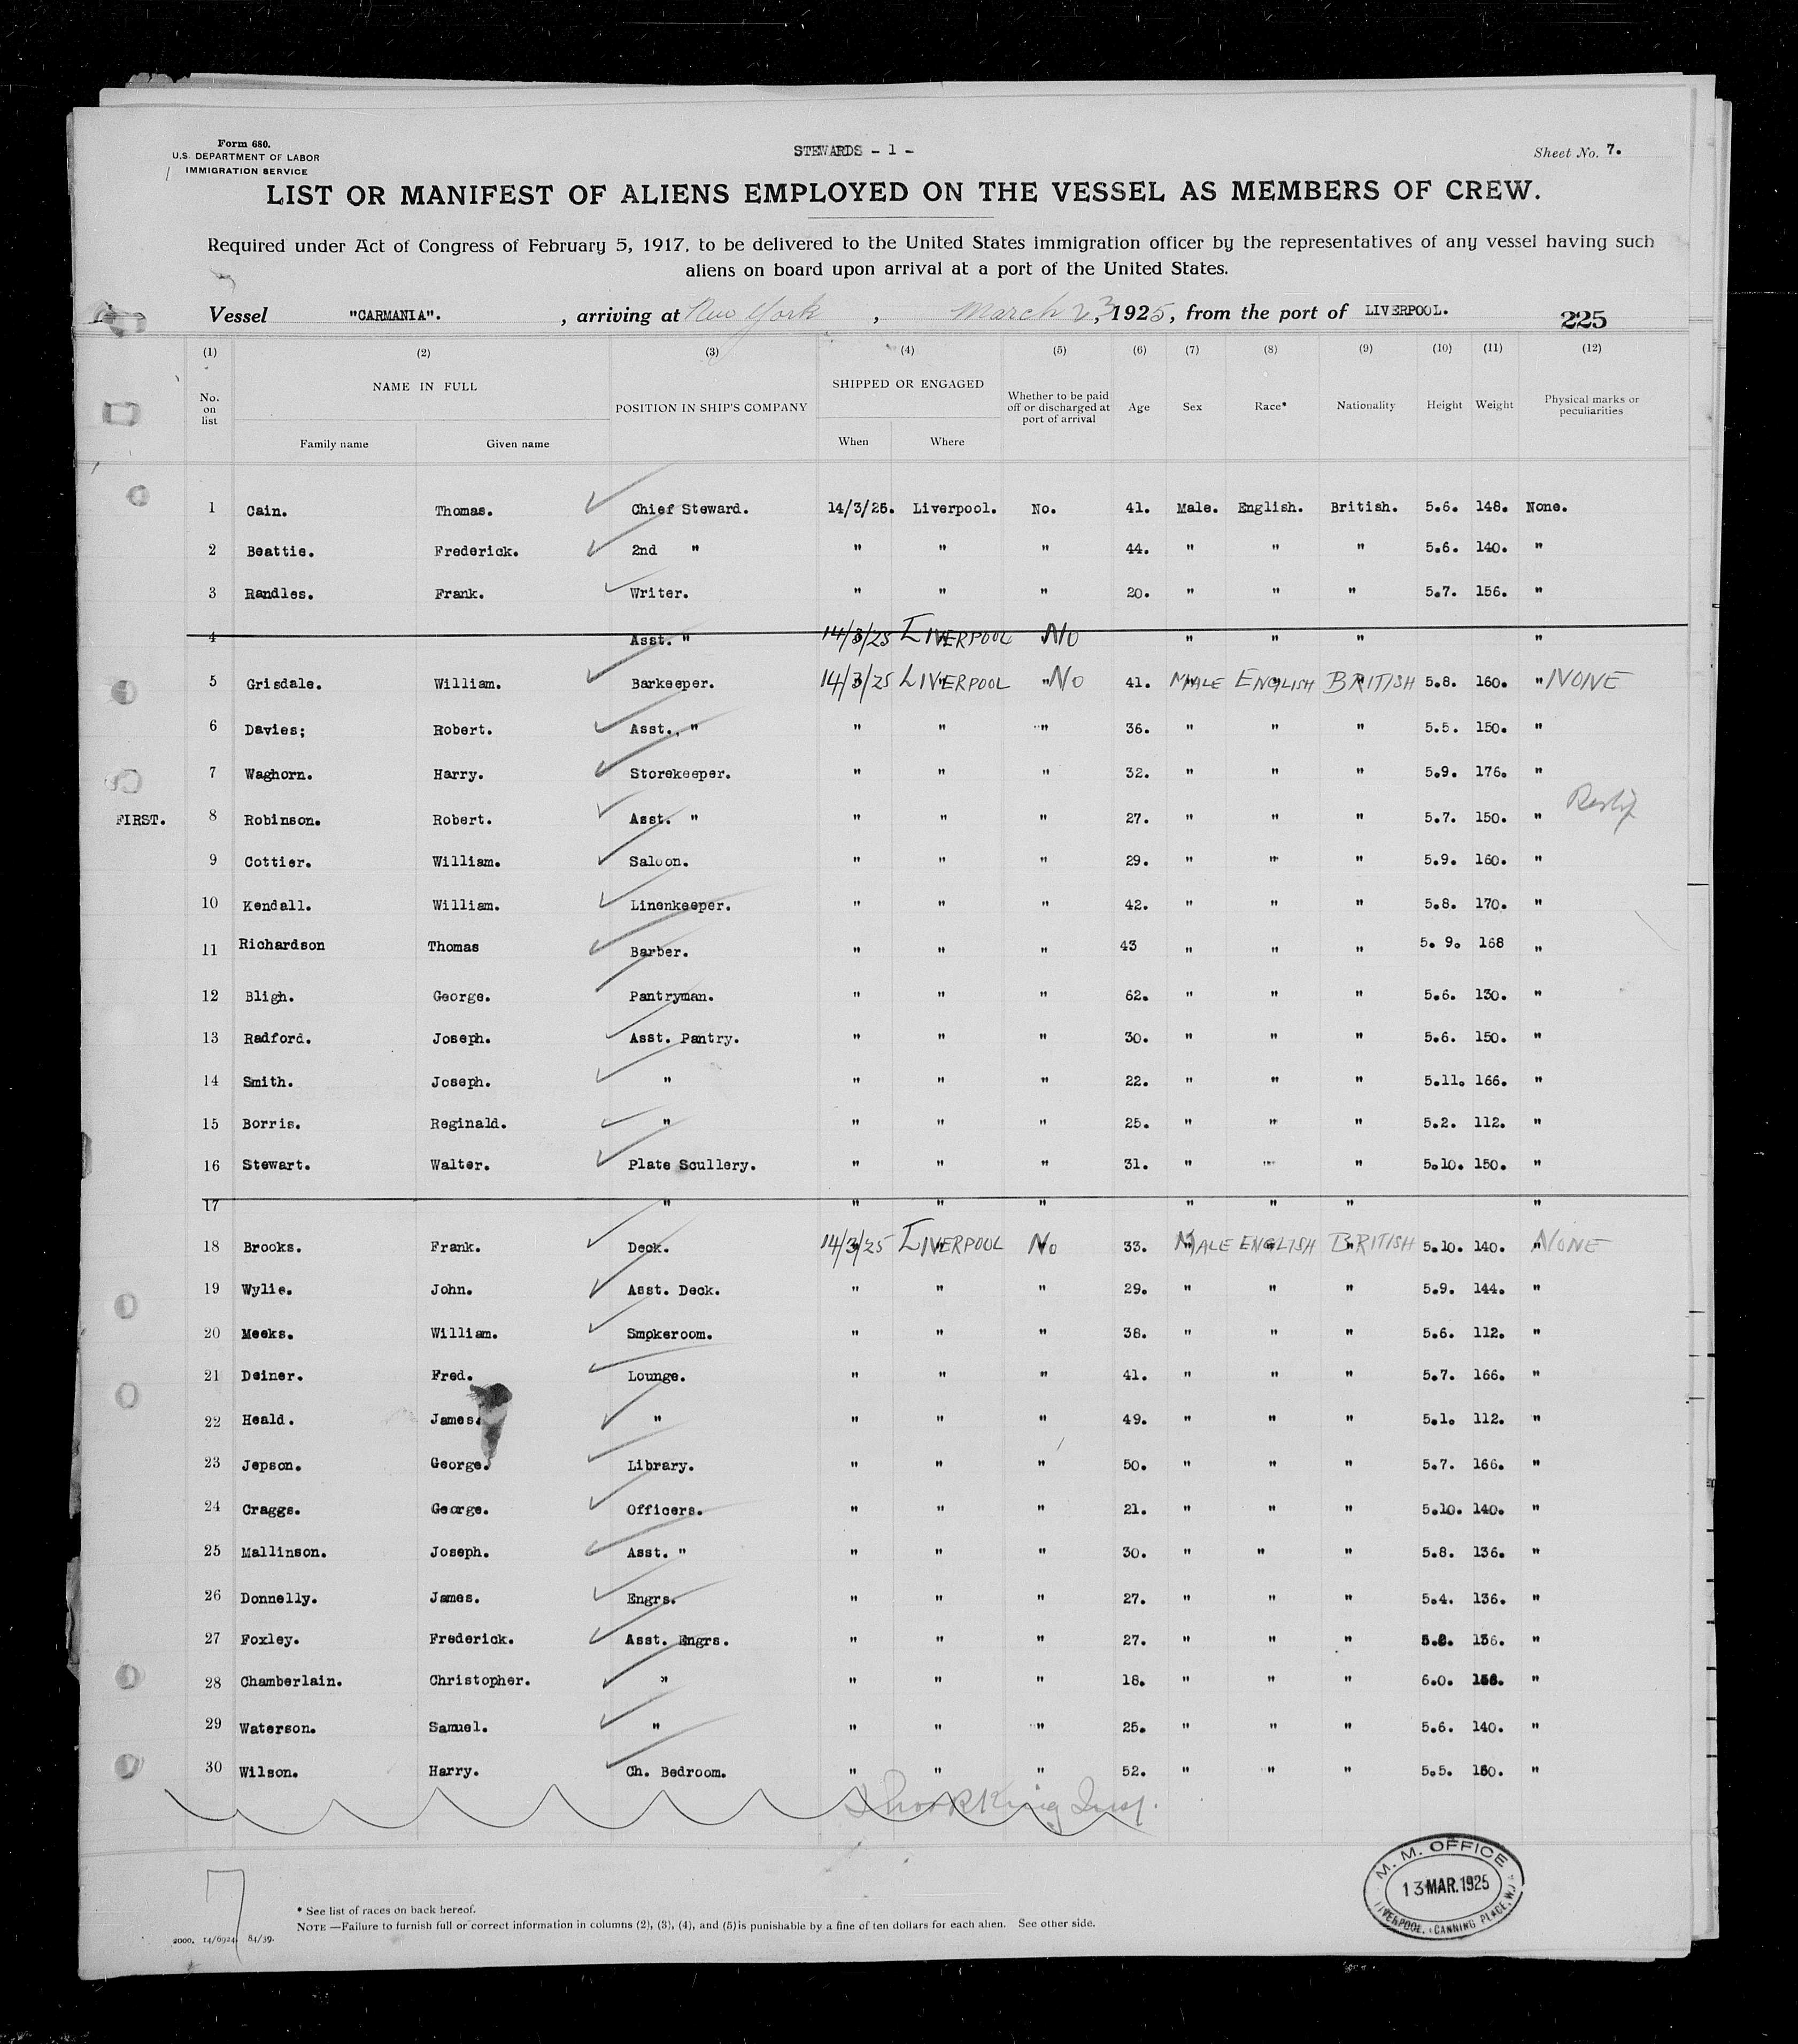 Form 680.
U.S. DEPARTMENT OF LABOR
IMMIGRATION SERVICE
STEWARDS - 1 -
Sheet No. 7.
LIST OR MANIFEST OF ALIENS EMPLOYED ON THE VESSEL AS MEMBERS OF CREW.
Required under Act of Congress of February 5, 1917, to be delivered to the United States immigration officer by the representatives of any vessel having such
aliens on board upon arrival at a port of the United States.
Vessel "CARMANIA". , arriving at New York , March 23, 1925, from the port of LIVERPOOL.
225
(1) (2) (3) (4) (5) (6) (7) (8) (9) (10) (11) (12)
No. on list NAME IN FULL Family name Given name POSITION IN SHIP'S COMPANY SHIPPED OR ENGAGED When Where Whether to be paid off or discharged at port of arrival Age Sex Race* Nationality Height Weight Physical marks or peculiarities
1 Cain. Thomas. Chief Steward. 14/3/25. Liverpool. No. 41. Male. English. British. 5.6. 148. None.
2 Beattie. Frederick. 2nd " " " " 44. " " " 5.6. 140. "
3 Randles. Frank. Writer. " " " 20. " " " 5.7. 156. "
4 Asst. " 14/3/25 LIVERPOOL No " " " "
5 Grisdale. William. Barkeeper. 14/3/25 LIVERPOOL " No 41. MALE ENGLISH BRITISH 5.8. 160. " NONE
6 Davies; Robert. Asst., " " " " 36. " " " 5.5. 150. "
7 Waghorn. Harry. Storekeeper. " " " 32. " " " 5.9. 176. "
FIRST. 8 Robinson. Robert. Asst. " " " " 27. " " " 5.7. 150. "
9 Cottier. William. Saloon. " " " 29. " " " 5.9. 160. "
10 Kendall. William. Linenkeeper. " " " 42. " " " 5.8. 170. "
11 Richardson Thomas Barber. " " " 43 " " " 5. 9. 168 "
12 Bligh. George. Pantryman. " " " 62. " " " 5.6. 130. "
13 Radford. Joseph. Asst. Pantry. " " " 30. " " " 5.6. 150. "
14 Smith. Joseph. " " " " 22. " " " 5.11. 166. "
15 Borris. Reginald. " " " " 25. " " " 5.2. 112. "
16 Stewart. Walter. Plate Scullery. " " " 31. " " " 5.10. 150. "
17 " " " " " " " "
18 Brooks. Frank. Deck. 14/3/25 LIVERPOOL No 33. MALE ENGLISH BRITISH 5.10. 140. " NONE
19 Wylie. John. Asst. Deck. " " " 29. " " " 5.9. 144. "
20 Meeks. William. Smokeroom. " " " 38. " " " 5.6. 112. "
21 Deiner. Fred. Lounge. " " " 41. " " " 5.7. 166. "
22 Heald. James. " " " " 49. " " " 5.1. 112. "
23 Jepson. George. Library. " " " 50. " " " 5.7. 166. "
24 Craggs. George. Officers. " " " 21. " " " 5.10. 140. "
25 Mallinson. Joseph. Asst. " " " " 30. " " " 5.8. 136. "
26 Donnelly. James. Engrs. " " " 27. " " " 5.4. 136. "
27 Foxley. Frederick. Asst. Engrs. " " " 27. " " " 136. "
28 Chamberlain. Christopher. " " " " 18. " " " 6.0. "
29 Waterson. Samuel. " " " " 25. " " " 5.6. 140. "
30 Wilson. Harry. Ch. Bedroom. " " " 52. " " " 5.5. "
7
* See list of races on back hereof.
NOTE —Failure to furnish full or correct information in columns (2), (3), (4), and (5) is punishable by a fine of ten dollars for each alien. See other side.
2000. 14/6924. 84/39.
M. M. OFFICE
13 MAR. 1925
LIVERPOOL, CANNING PLACE,